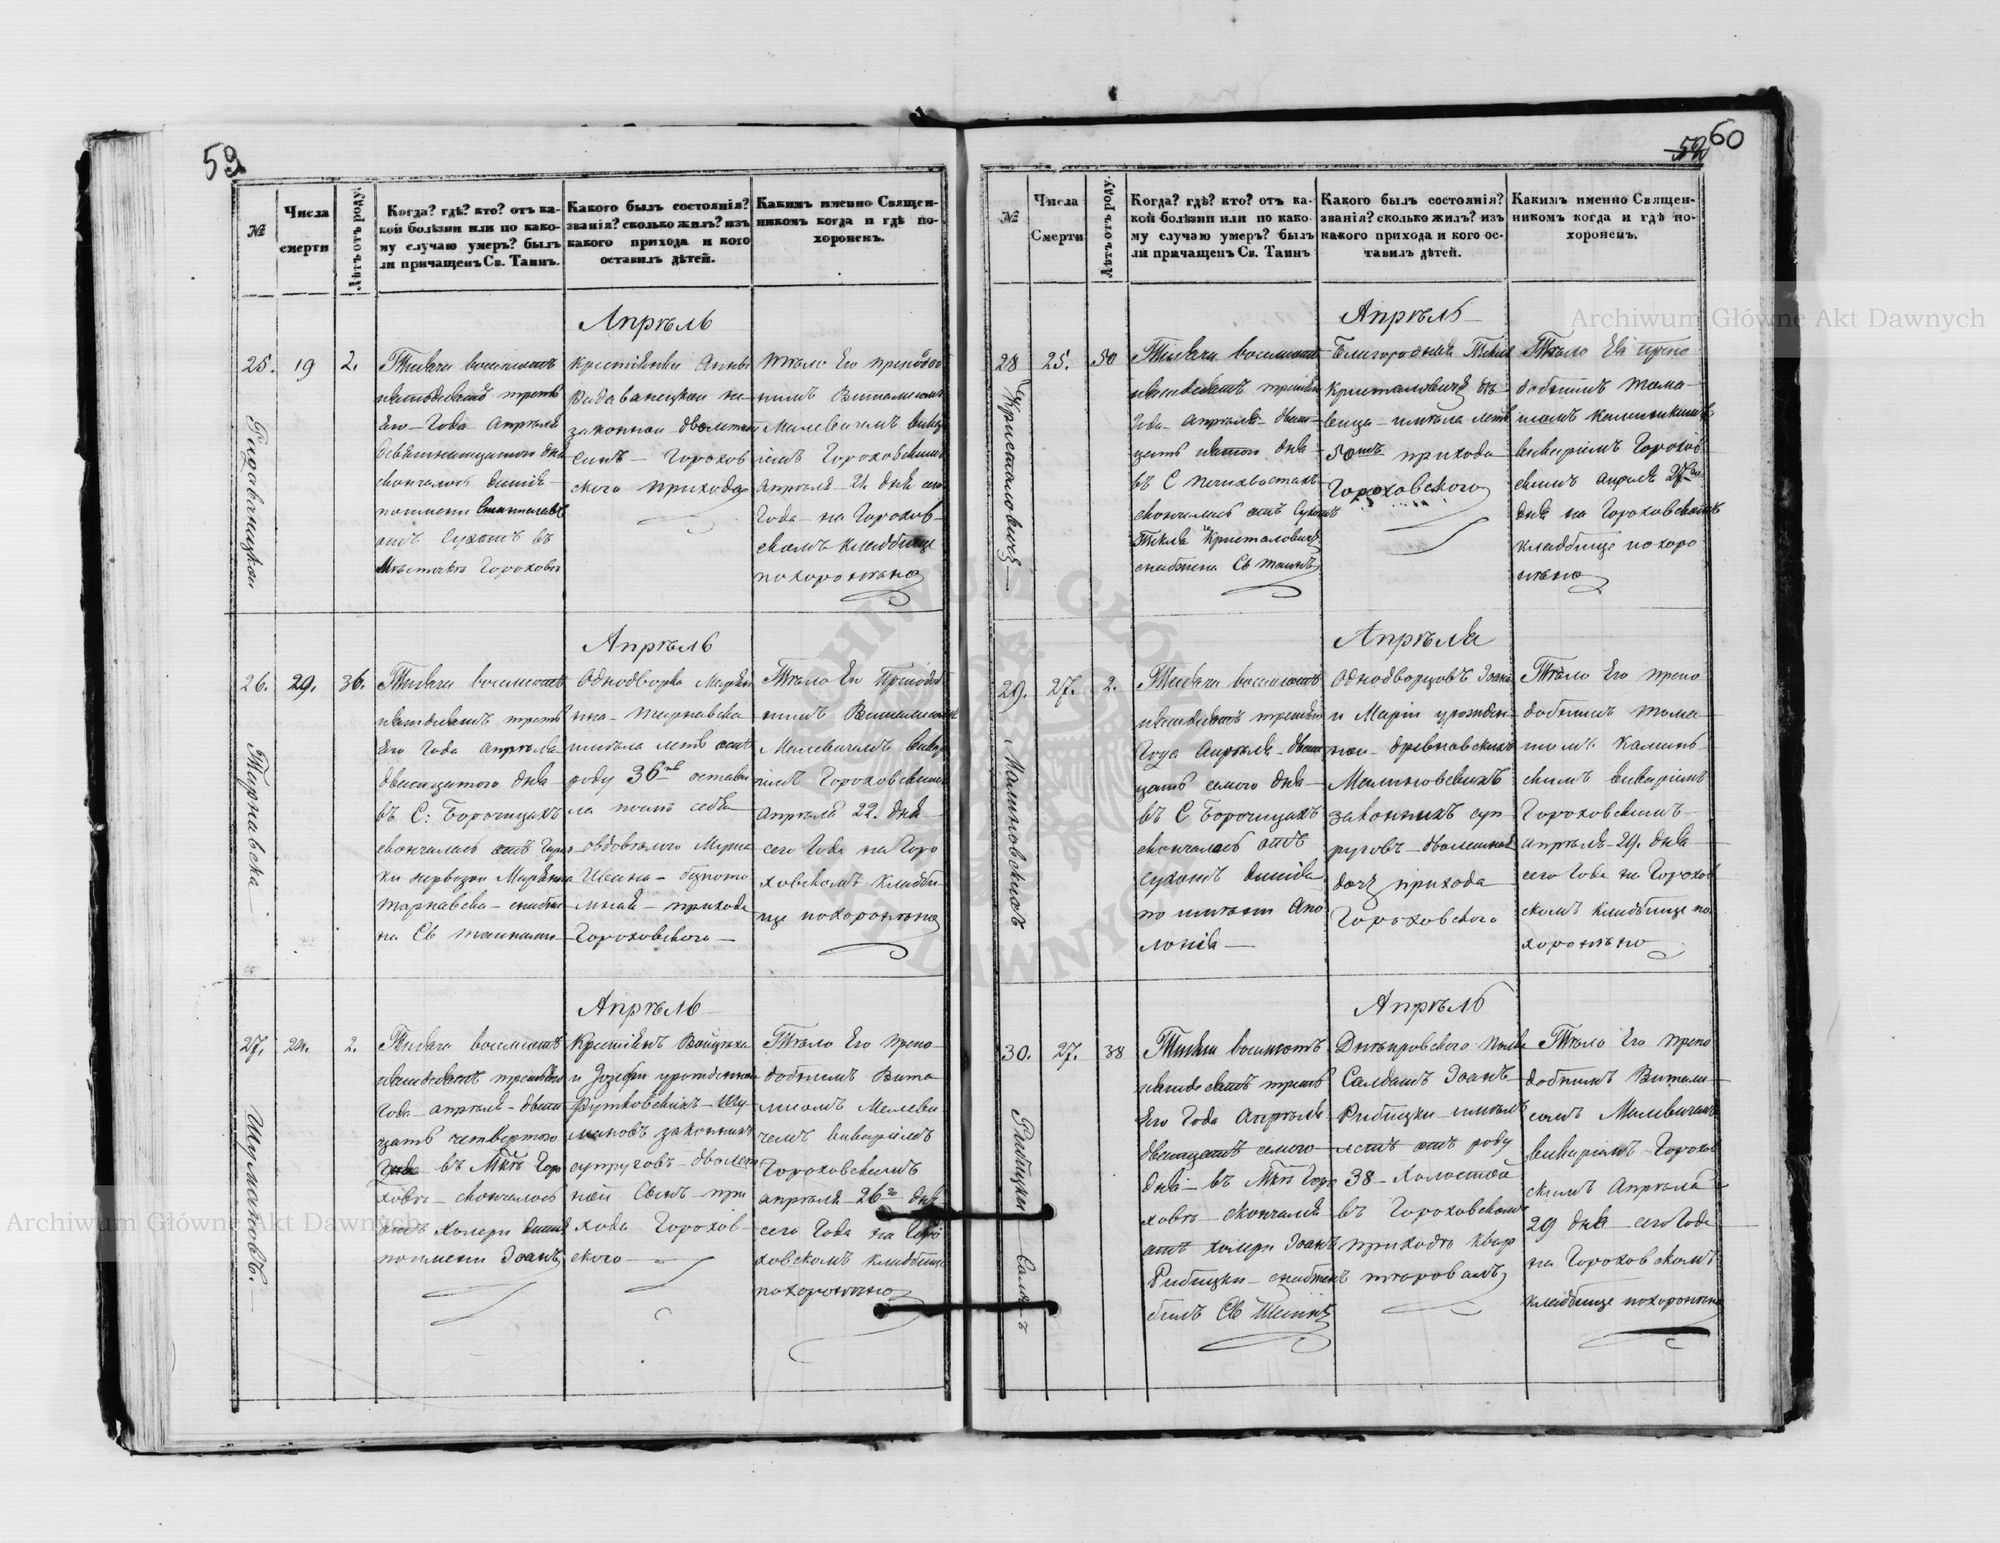 59
№
Числа
смерти
Лѣтъ отъ роду.
Когда? гдѣ? кто? отъ ка-
кой болѣзни или по како-
му случаю умеръ? былъ
ли причащенъ Св. Таинъ.
Какого былъ состоянія?
званія? сколько жилъ? изъ
какого прихода и кого
оставилъ дѣтей.
Какимъ именно Священ-
никомъ когда и гдѣ по-
хороненъ.
Апрѣль
25.
19
2.
Тысяча восемьсотъ
пятьдесятъ треть
Его Года Апрѣля
девятнадцатого дня
скончался
по имени
отъ Сухотъ въ
Мѣстечкѣ Гороховѣ
Крестьянки Анны
законной дволетный
Сынъ Горохов
ского прихода
Тѣло Его преподоб
нимъ Виталисомъ
Малевичемъ викар
іемъ Гороховскимъ
Апрѣля 21 дня сего
Года на Горохов
скомъ кладбище
похоронено
Апрѣль
26.
29.
36.
Тысяча восемьсотъ
пятьдесятъ треть
Его Года Апрѣля
двадцатого дня
въ С: Борочицахъ
скончалась отъ Горяч
ки нервозой Марянна
Тарнавска снабже
на Св тайнами
Однодворка Марян
на Тарнавска
имѣла летъ отъ
роду 36ть остави
ла после себя
овдовѣлого Мужа
Ивана
прихода
Гороховского
Тѣло Ея Преподоб
нимъ Виталисомъ
Малевичемъ викар
іемъ Гороховскимъ
Апрѣля 22. дня
сего Года на Горо
ховскомъ кладби
ще похоронено
Тарнавска
Апрѣль
27.
24.
2.
Тысяча восемьсотъ
пятьдесятъ третьяго
Года апрѣля двад
цать четвертого
дня въ Мѣст Горо
ховѣ скончалось
отъ Холеры дитя
по имени Іоанъ
Крестьянъ Войцѣха
и Іозефы урожденной
Рутковскихъ Шу
мановъ законныхъ
супруговъ дволет
ной Сынъ при
хода Горохов
ского
Тѣло Его препо
добнимъ Вита
лисомъ Малеви
чемъ викаріемъ
Гороховскимъ
апрѣля 26го дня
сего Года на Горо
ховскомъ кладбище
похоронено
60
№
Числа
Смерти
Лѣтъ отъ роду.
Когда? гдѣ? кто? отъ ка-
кой болѣзни или по како-
му случаю умеръ? былъ
ли причащенъ Св. Таинъ
Какого былъ состоянія?
званія? сколько жилъ? изъ
какого прихода и кого ос-
тавилъ дѣтей.
Какимъ именно Священ-
никомъ когда и гдѣ по-
хороненъ.
Апрѣль
28
25.
50
Тысяча восемьсотъ
пятьдесятъ третьяго
Года Апрѣля двад
цать пятого дня
въ С Печихвостахъ
скончалась отъ Сухотъ
Текля Кристаловичъ
снабжена Св таинъ
Благородная Текля
Кристаловичъ дѣ
вица имѣла летъ
50тъ прихода
Гороховского
Тѣло Ея препо
добнимъ Тома
викаріемъ Горохов
скимъ апрѣля 27го
дня на Гороховскомъ
кладбище похоро
нено
Апрѣля
29.
27.
2.
Тысяча восемьсотъ
пятьдесятъ третьяго
Года Апрѣля двад
цать семого дня
въ С Борочицахъ
скончалась отъ
сухотъ дитя
по имени Апо
лонія
Однодворцовъ Іоана
и Маріи урожден
ной
Малиновскихъ
законныхъ суп
руговъ дволетная
дочь прихода
Гороховского
Тѣло Его препо
добнимъ Тома
скимъ викаріемъ
Гороховскимъ
апрѣля 29. дня
сего Года на Горохов
скомъ кладбище по
хоронено
Малиновскихъ
Апрѣль
30.
27.
38
Тысяча восемьсотъ
пятьдесятъ треть
Его Года Апрѣля
двадцать семого
дня въ Мѣст Горо
ховѣ скончался
отъ холеры Іоанъ
Рибицки снабжен
былъ Св Таинъ
Днѣпровского Полка
Салдатъ Іоанъ
Рибицки имѣлъ
летъ отъ роду
38 Холостой
въ Гороховскомъ
приходѣ квар
тировалъ
Тѣло Его препо
добнимъ Витали
сомъ Малевичемъ
викаріемъ Горохов
скимъ Апрѣля
29 дня сего Года
на Гороховскомъ
кладбище похоронено
Рибицки
Archiwum Główne Akt Dawnych
Archiwum Główne Akt Dawnych